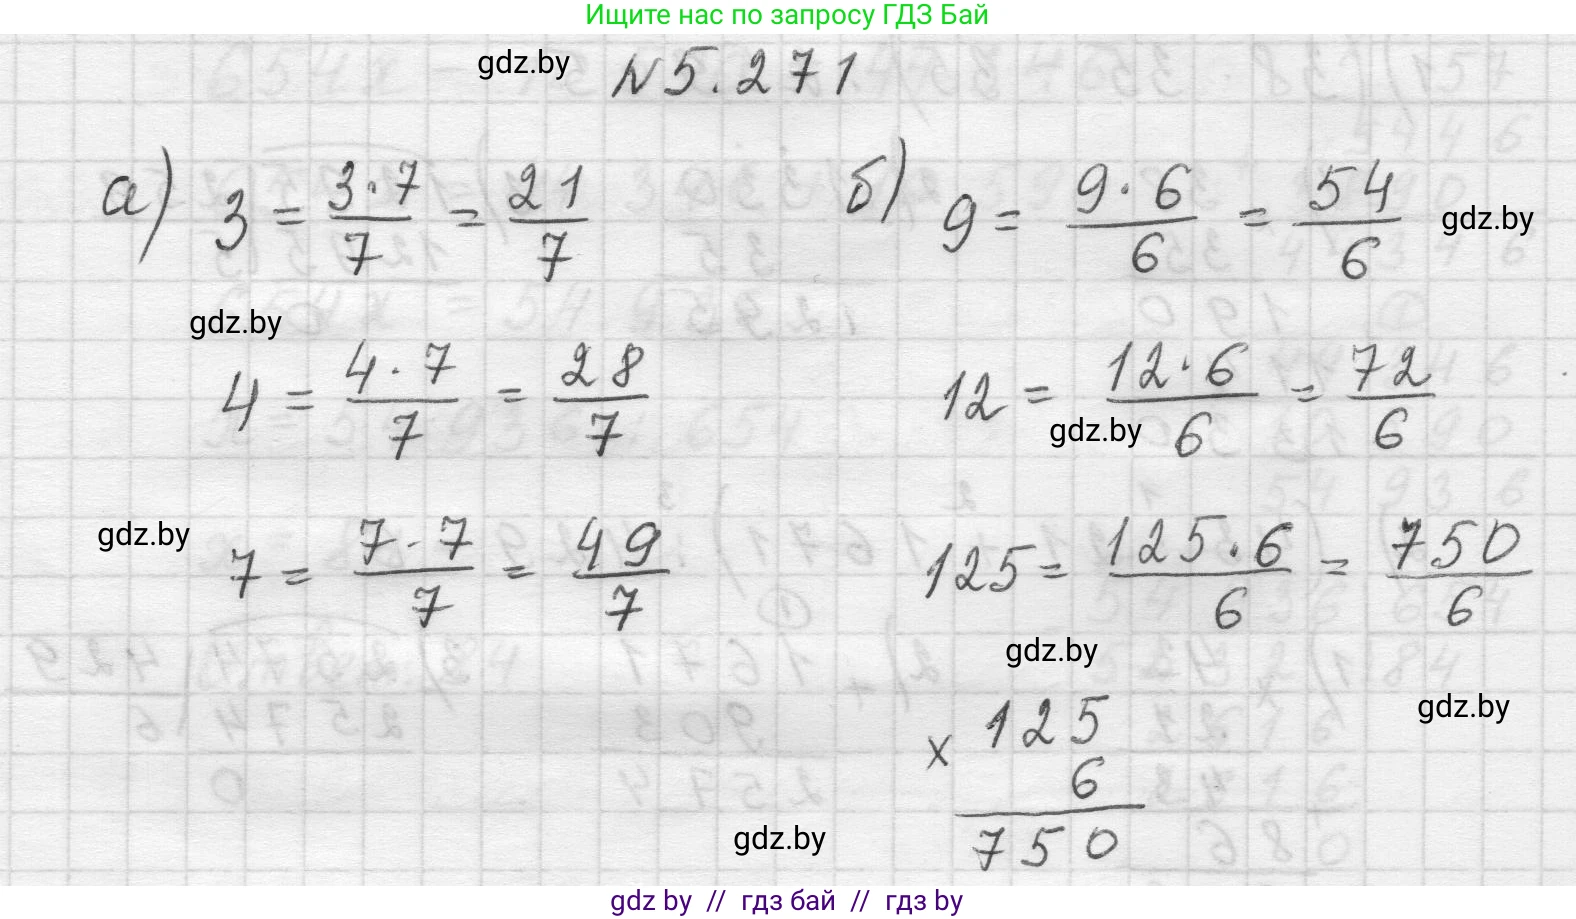 Ищите нас по запросу ГДЗ Бай
gdz.by
N 5.271
а) 3 = 3·7/7 = 21/7
б) 9 = 9·6/6 = 54/6
gdz.by
gdz.by
4 = 4·7/7 = 28/7
12 = 12·6/6 = 72/6
gdz.by
gdz.by
7 = 7·7/7 = 49/7
125 = 125·6/6 = 750/6
gdz.by
gdz.by
× 125
6
750
gdz.by
gdz.by // гдз бай // gdz.by